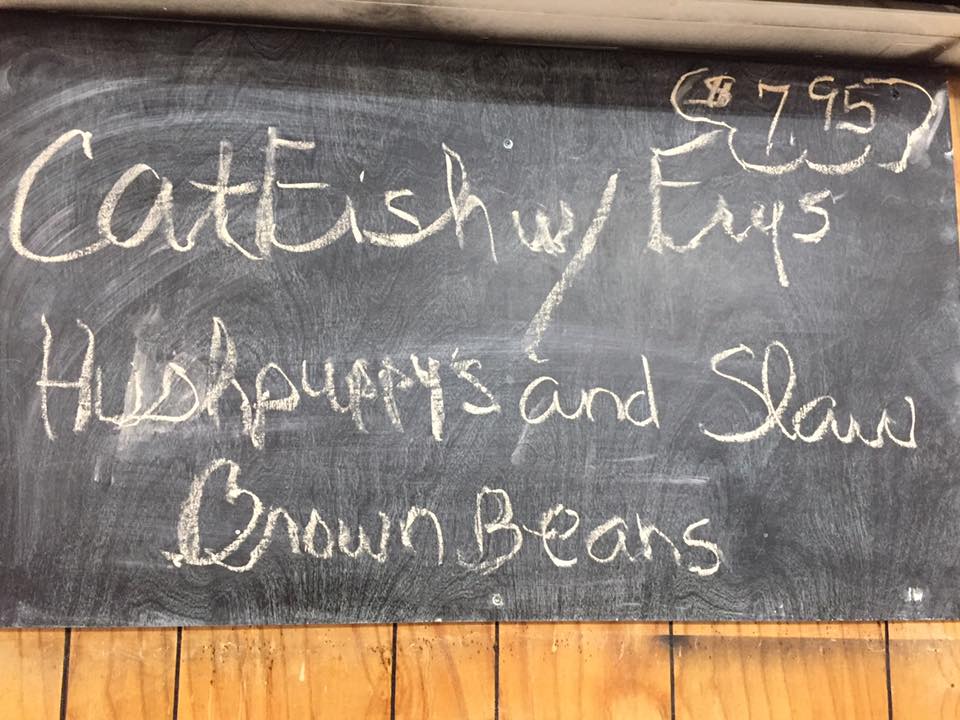 $ 7.95
Catfish w/ Frys
Hushpuppy's and Slaw
Brown Beans